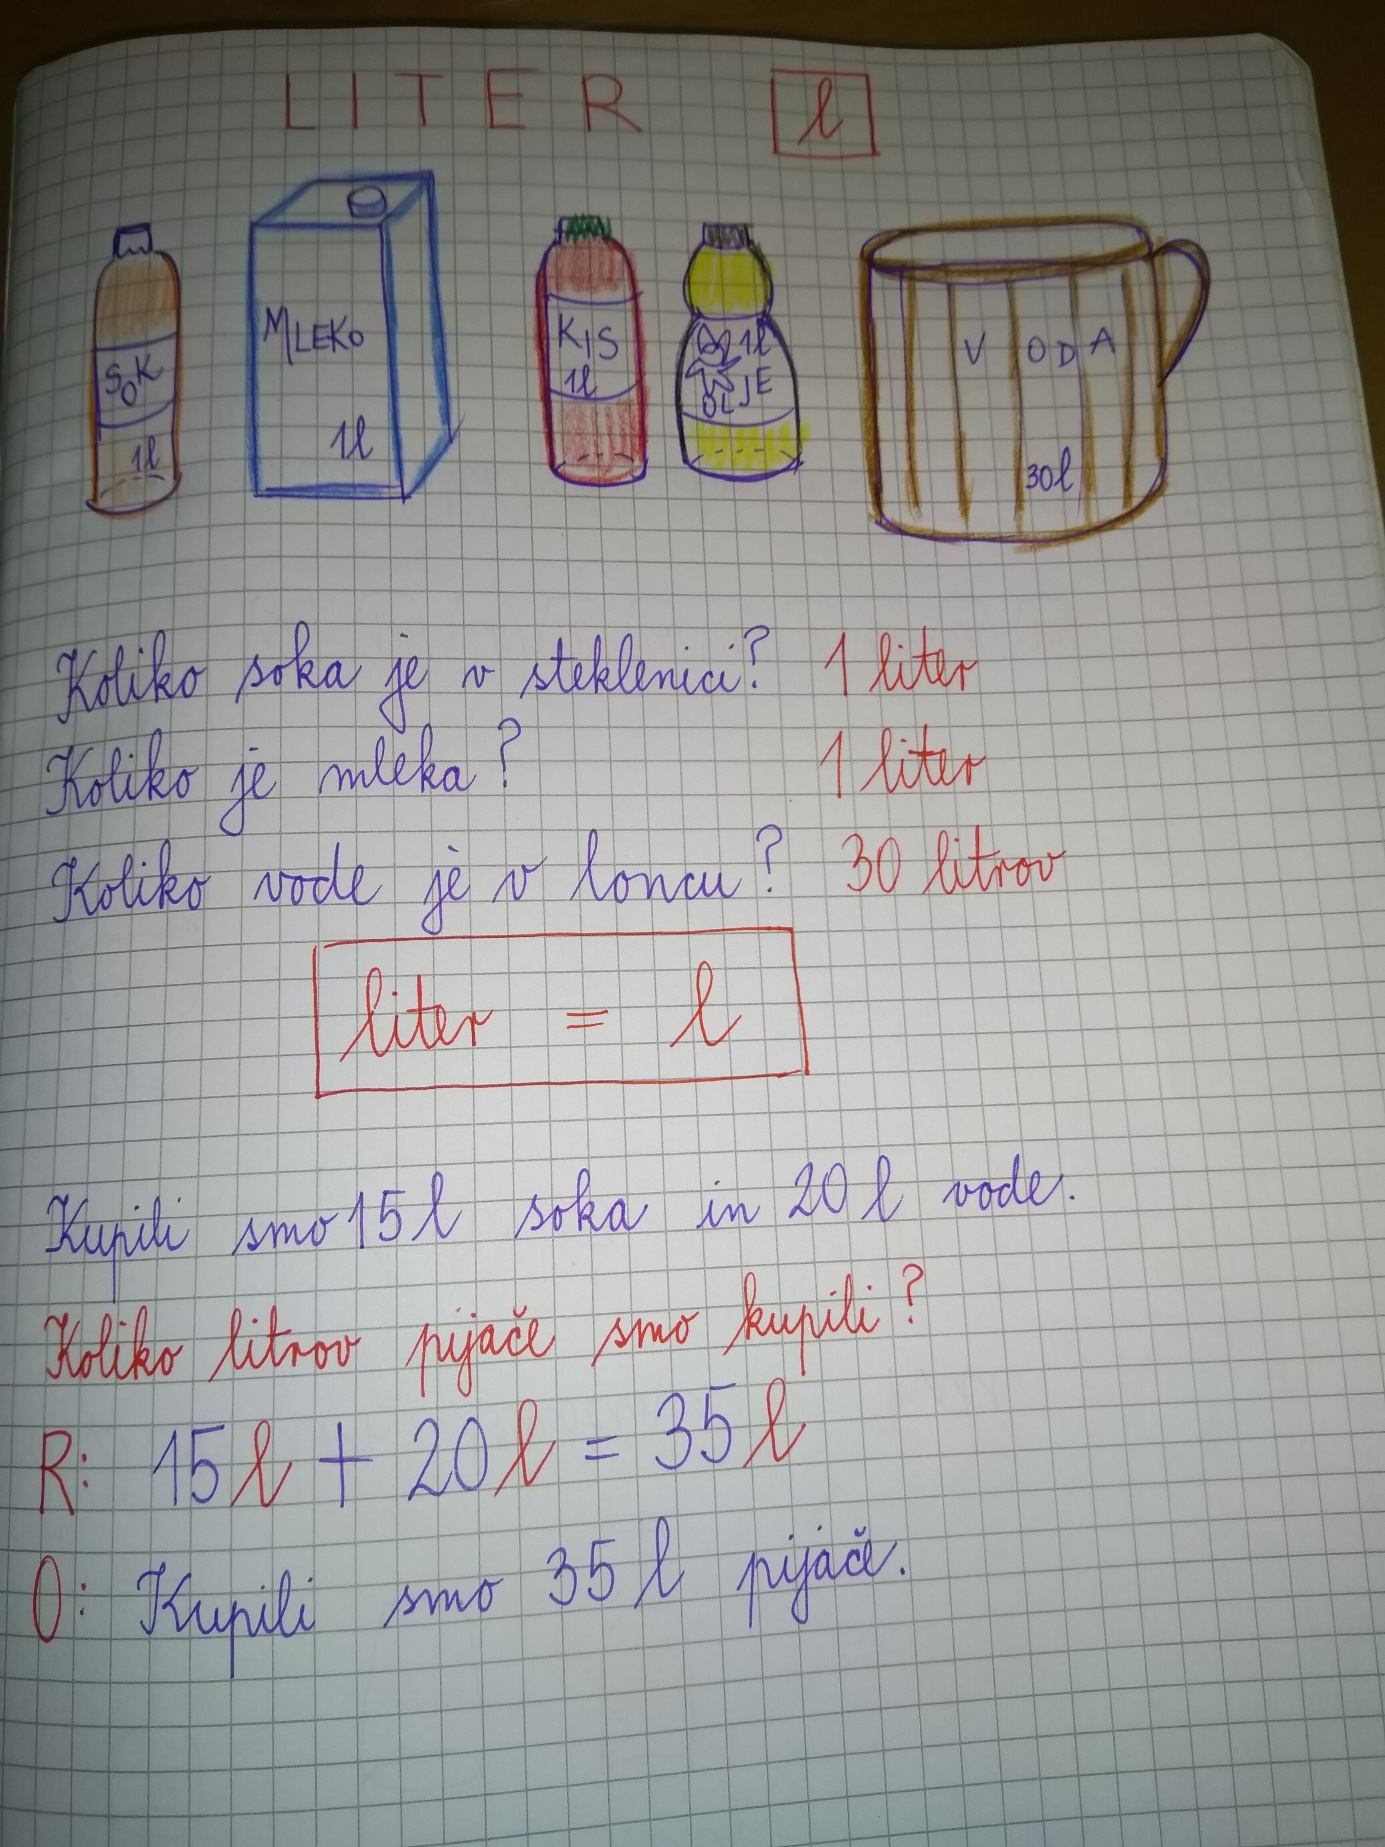 LITER l
SOK
1l
MLEKO
1l
KIS
1l
1l
OLJE
VODA
30l
Koliko soka je v steklenici? 1 liter
Koliko je mleka? 1 liter
Koliko vode je v loncu? 30 litrov
liter = l
Kupili smo 15 l soka in 20 l vode.
Koliko litrov pijače smo kupili?
R: 15 l + 20 l = 35 l
O: Kupili smo 35 l pijače.